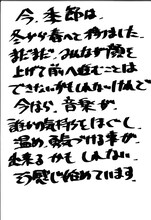 今、季節は、
冬から春へて移りました。
まだまだ、みんなが顔を
上げて前へ進むことは
できないかもしれないけれど
今なら、音楽が、
誰かの気持ちをほぐし、
温め、勇気づける事が、
出来るかもしれない。
そう感じ始めています。